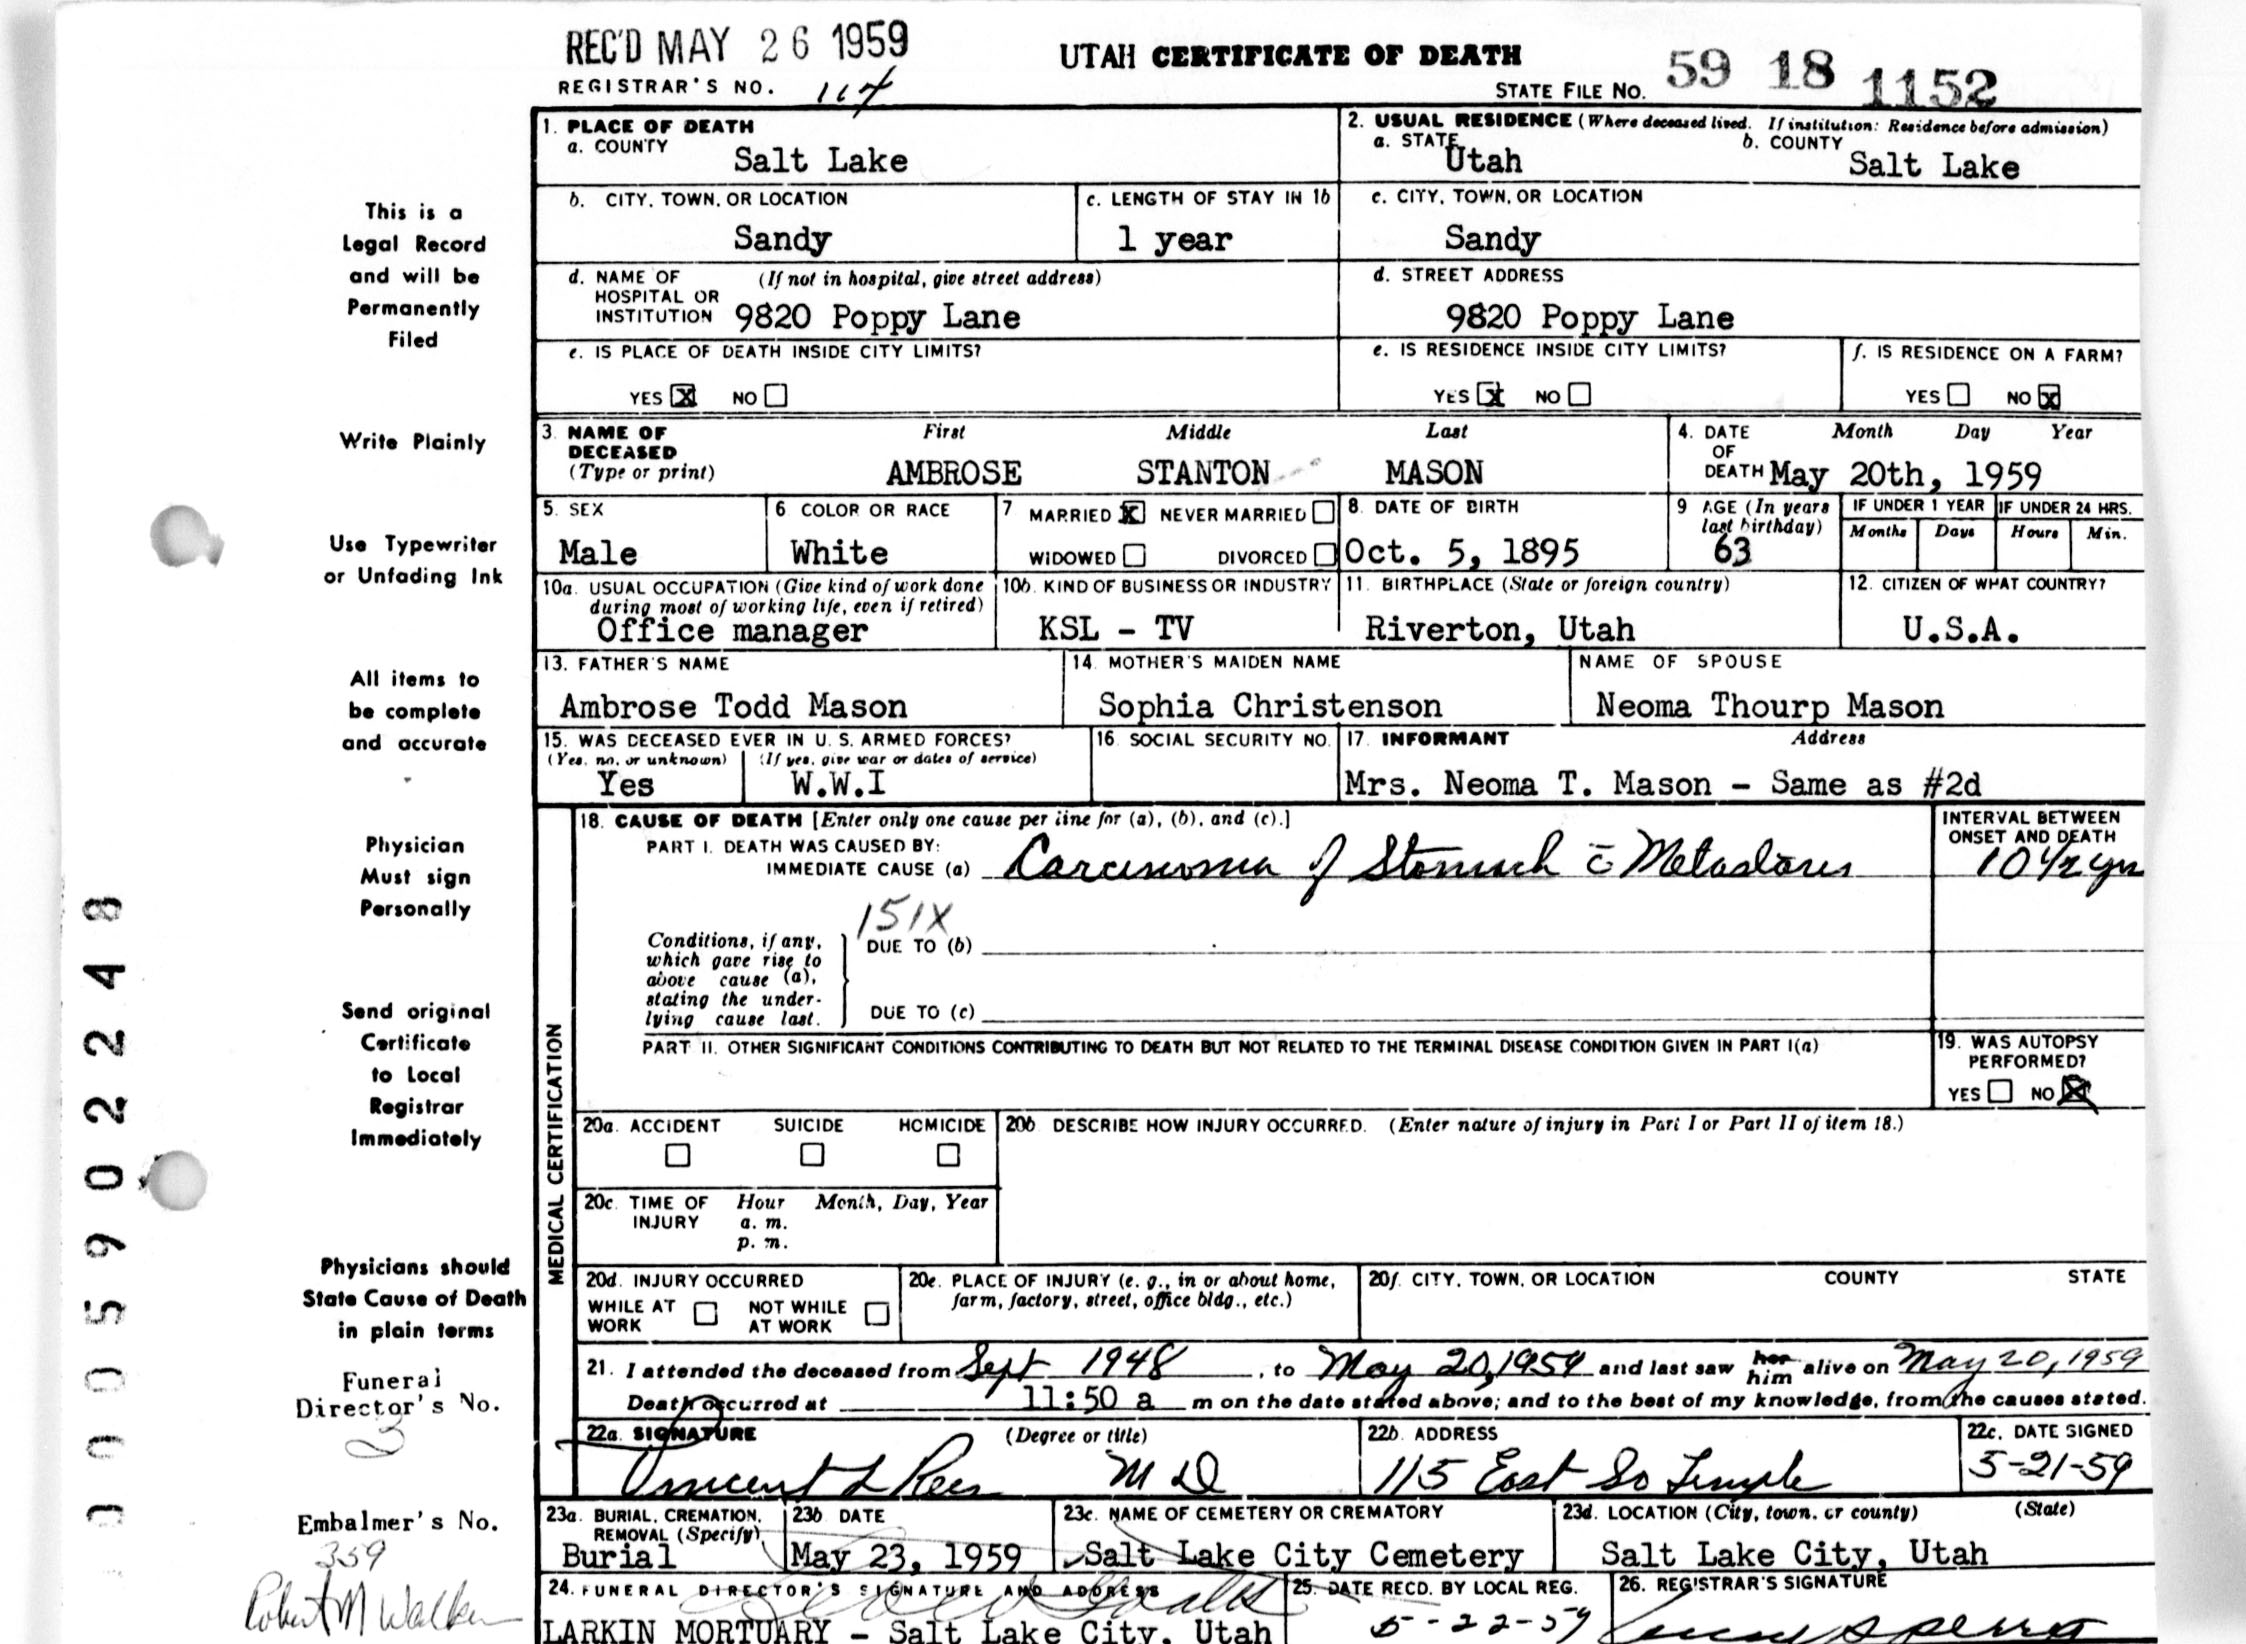 REC'D MAY 26 1959
UTAH CERTIFICATE OF DEATH
REGISTRAR'S NO. 114
STATE FILE NO. 59 18 1152
1. PLACE OF DEATH
a. COUNTY
Salt Lake
2. USUAL RESIDENCE (Where deceased lived. If institution: Residence before admission)
a. STATE Utah
b. COUNTY Salt Lake
b. CITY, TOWN, OR LOCATION
Sandy
c. LENGTH OF STAY IN 1b
1 year
c. CITY, TOWN, OR LOCATION
Sandy
d. NAME OF HOSPITAL OR INSTITUTION (If not in hospital, give street address)
9820 Poppy Lane
d. STREET ADDRESS
9820 Poppy Lane
e. IS PLACE OF DEATH INSIDE CITY LIMITS?
YES X NO
e. IS RESIDENCE INSIDE CITY LIMITS?
YES X NO
f. IS RESIDENCE ON A FARM?
YES NO X
3. NAME OF DECEASED (Type or print)
First Middle Last
AMBROSE STANTON MASON
4. DATE OF DEATH
Month Day Year
May 20th, 1959
5. SEX
Male
6 COLOR OR RACE
White
7 MARRIED X NEVER MARRIED
WIDOWED DIVORCED
8. DATE OF BIRTH
Oct. 5, 1895
9 AGE (In years last birthday)
63
IF UNDER 1 YEAR
Months Days
IF UNDER 24 HRS.
Hours Min.
10a. USUAL OCCUPATION (Give kind of work done during most of working life, even if retired)
Office manager
10b. KIND OF BUSINESS OR INDUSTRY
KSL - TV
11. BIRTHPLACE (State or foreign country)
Riverton, Utah
12. CITIZEN OF WHAT COUNTRY?
U.S.A.
13. FATHER'S NAME
Ambrose Todd Mason
14. MOTHER'S MAIDEN NAME
Sophia Christenson
NAME OF SPOUSE
Neoma Thourp Mason
15. WAS DECEASED EVER IN U. S. ARMED FORCES?
(Yes, no, or unknown) (If yes, give war or dates of service)
Yes W.W.I
16. SOCIAL SECURITY NO.
17. INFORMANT Address
Mrs. Neoma T. Mason - Same as #2d
MEDICAL CERTIFICATION
18. CAUSE OF DEATH [Enter only one cause per line for (a), (b), and (c).]
PART I. DEATH WAS CAUSED BY:
IMMEDIATE CAUSE (a) Carcinoma of Stomach c̄ Metastases
INTERVAL BETWEEN ONSET AND DEATH
10 1/2 yrs
151X
Conditions, if any, which gave rise to above cause (a), stating the underlying cause last.
DUE TO (b)
DUE TO (c)
PART II. OTHER SIGNIFICANT CONDITIONS CONTRIBUTING TO DEATH BUT NOT RELATED TO THE TERMINAL DISEASE CONDITION GIVEN IN PART I(a)
19. WAS AUTOPSY PERFORMED?
YES NO X
20a. ACCIDENT SUICIDE HOMICIDE
20b DESCRIBE HOW INJURY OCCURRED. (Enter nature of injury in Part I or Part II of item 18.)
20c. TIME OF INJURY Hour Month, Day, Year
a. m.
p. m.
20d. INJURY OCCURRED
WHILE AT WORK NOT WHILE AT WORK
20e. PLACE OF INJURY (e. g., in or about home, farm, factory, street, office bldg., etc.)
20f. CITY, TOWN, OR LOCATION COUNTY STATE
21. I attended the deceased from Sept 1948, to May 20, 1959 and last saw her him alive on May 20, 1959
Death occurred at 11:50 a m on the date stated above; and to the best of my knowledge, from the causes stated.
22a. SIGNATURE (Degree or title)
Vincent L Rees M D
22b. ADDRESS
115 East So Temple
22c. DATE SIGNED
5-21-59
23a. BURIAL, CREMATION, REMOVAL (Specify)
Burial
23b DATE
May 23, 1959
23c. NAME OF CEMETERY OR CREMATORY
Salt Lake City Cemetery
23d. LOCATION (City, town, or county) (State)
Salt Lake City, Utah
24. FUNERAL DIRECTOR'S SIGNATURE AND ADDRESS
LARKIN MORTUARY - Salt Lake City, Utah
25. DATE RECD. BY LOCAL REG.
5-22-59
26. REGISTRAR'S SIGNATURE
This is a
Legal Record
and will be
Permanently
Filed
Write Plainly
Use Typewriter
or Unfading Ink
All items to
be complete
and accurate
Physician
Must sign
Personally
Send original
Certificate
to Local
Registrar
Immediately
Physicians should
State Cause of Death
in plain terms
Funeral
Director's No.
3
Embalmer's No.
359
Robert M Walker
00059022248